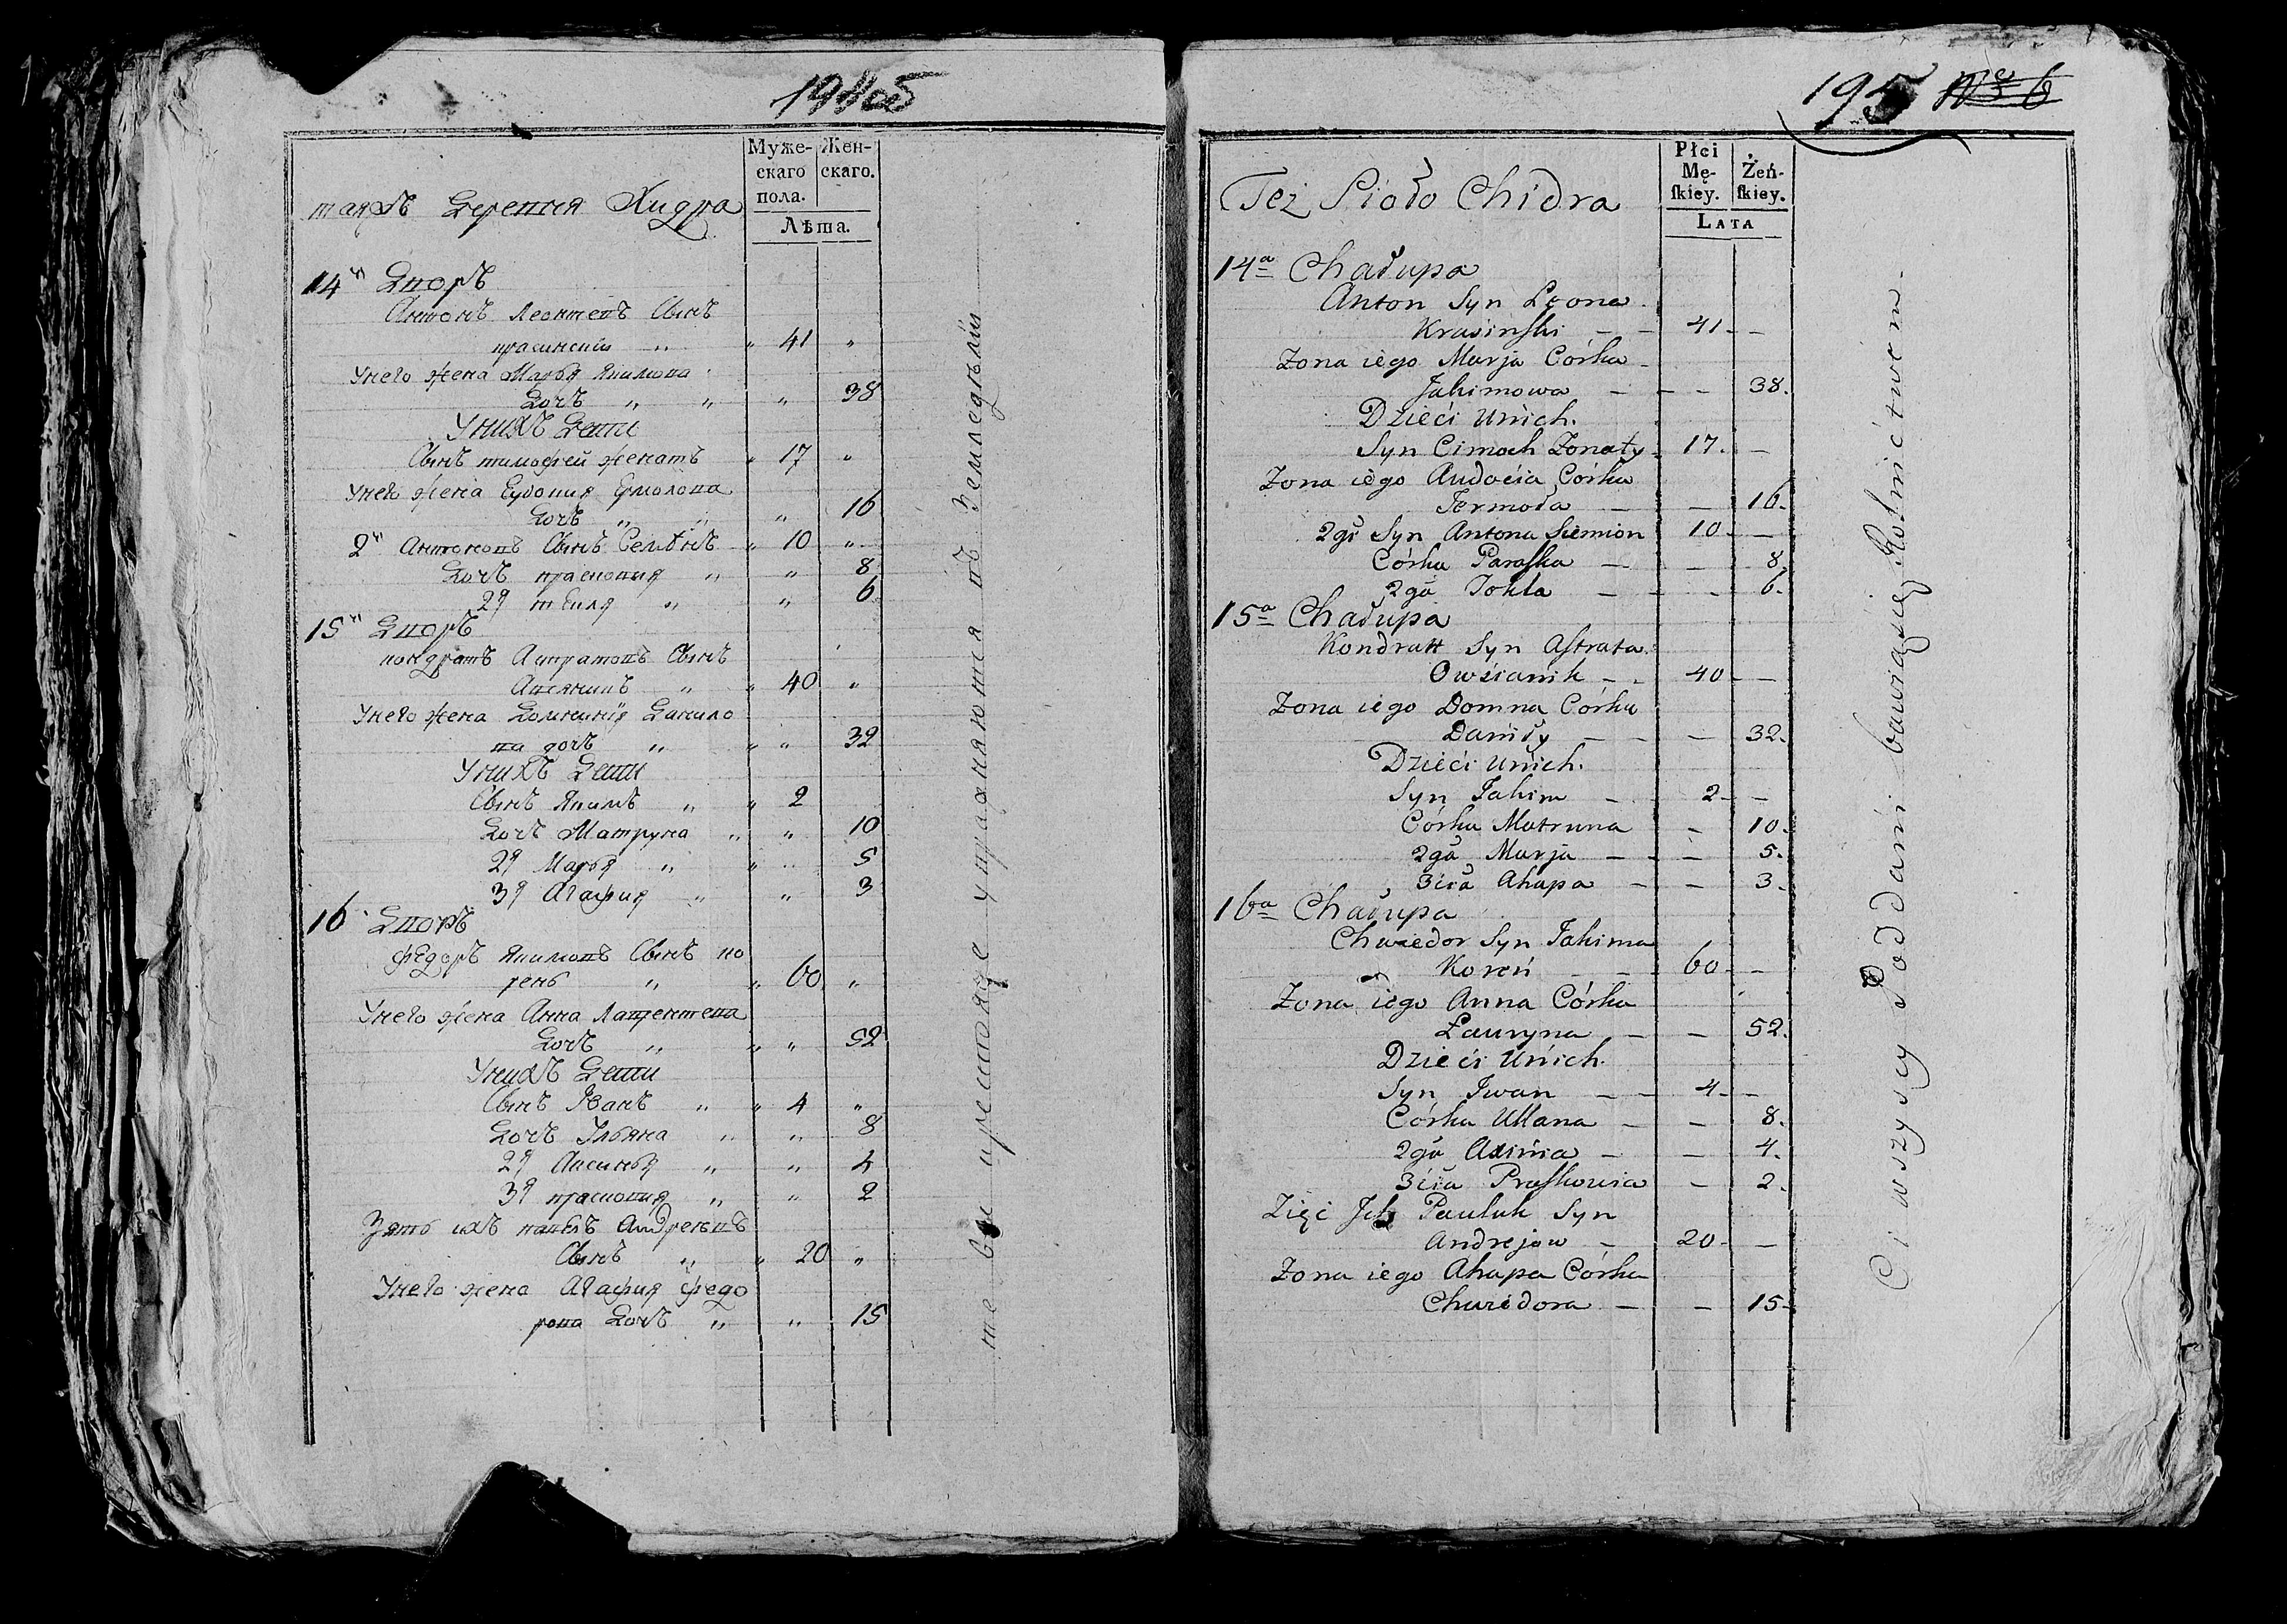 194об
Муже-
скаго
пола.
Жен-
скаго.
Лѣта.
таяжъ Деревня Хидра
14й Дворъ
Антонъ Леонтевъ Сынъ
красинскій „ „ 41 „
Унего жена Марья Якимова
Дочь „ „ „ 38
Унихъ Дети
Сынъ тимофей женатъ „ 17 „
Унего жена Евдокия Ермолова
Дочь „ „ „ 16
2й Антоновъ Сынъ Семѣнъ „ 10 „
Дочь прасковия „ „ 8
2я тЕкля „ „ 6
15й Дворъ
кондратъ Астратовъ Сынъ
„ „ 40 „
Унего жена Домникія Данило
ва дочь „ „ „ 32
Унихъ Дети
Сынъ Якимъ „ „ 2
Дочь Матруна „ „ 10
2я Марья „ „ „ 5
3я Агафия „ „ 3
16 Дворъ
фЕдоръ Якимовъ Сынъ ко
рень „ „ 60 „
Унего жена Анна Лаврентева
Дочь „ „ „ 52
Унихъ Дети
Сынъ Иванъ „ „ 4 „
Дочь Ульяна „ „ 8
2я Аксинья „ „ 4
3я прасковия „ „ 2
Зять ихъ павелъ Андреевъ
Сынъ „ „ 20 „
Унего жена Агафия федо
рова Дочь „ „ 15
те Все крестьяне упражняются въ Земледѣліи
195 N⁰ 6
Płci
Mę-
ſkiey.
Żeń-
ſkiey.
LATA
Też Sioło Chidra
14a Chałupa
Anton Syn Leona
Krasinſki – – 41 – –
Zona iego Marja Córka
Jakimowa – – – 38.
Dzieći Unich.
Syn Cimoch Zonaty 17. –
Zona iego Audoćia Córka
Jermoła – – 16.
2gi Syn Antona Siemion 10 – –
Córka Paraſka – – 8.
2ga Tokla – – – 6.
15a Chałupa
Kondratt Syn Aſtrata
Owsianik – – 40 – –
Zona iego Domna Córka
Daniły – – 32.
Dzieći Unich.
Syn Jakim – 2 – –
Córka Matruna – 10.
2ga Marja – – – 5.
3cia Ahapa – – 3.
16a Chałupa
Chwiedor Syn Jakima
Koreń – – 60 – –
Zona iego Anna Córka
Ławryna – – 52.
Dzieći Unich.
Syn Iwan – – 4 – –
Córka Ullana – – 8.
2ga Axinia – – 4.
3cia Praſkowia – 2.
Zięć Ich Pauluk Syn
Andrejow – 20 – –
Zona iego Ahapa Córka
Chwiedora – – 15.
Ci wszyscy Poddani bawią się Rolnictwem.